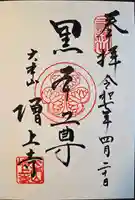 奉拝
令和七年四月二十日
黒本尊
大本山
増上寺